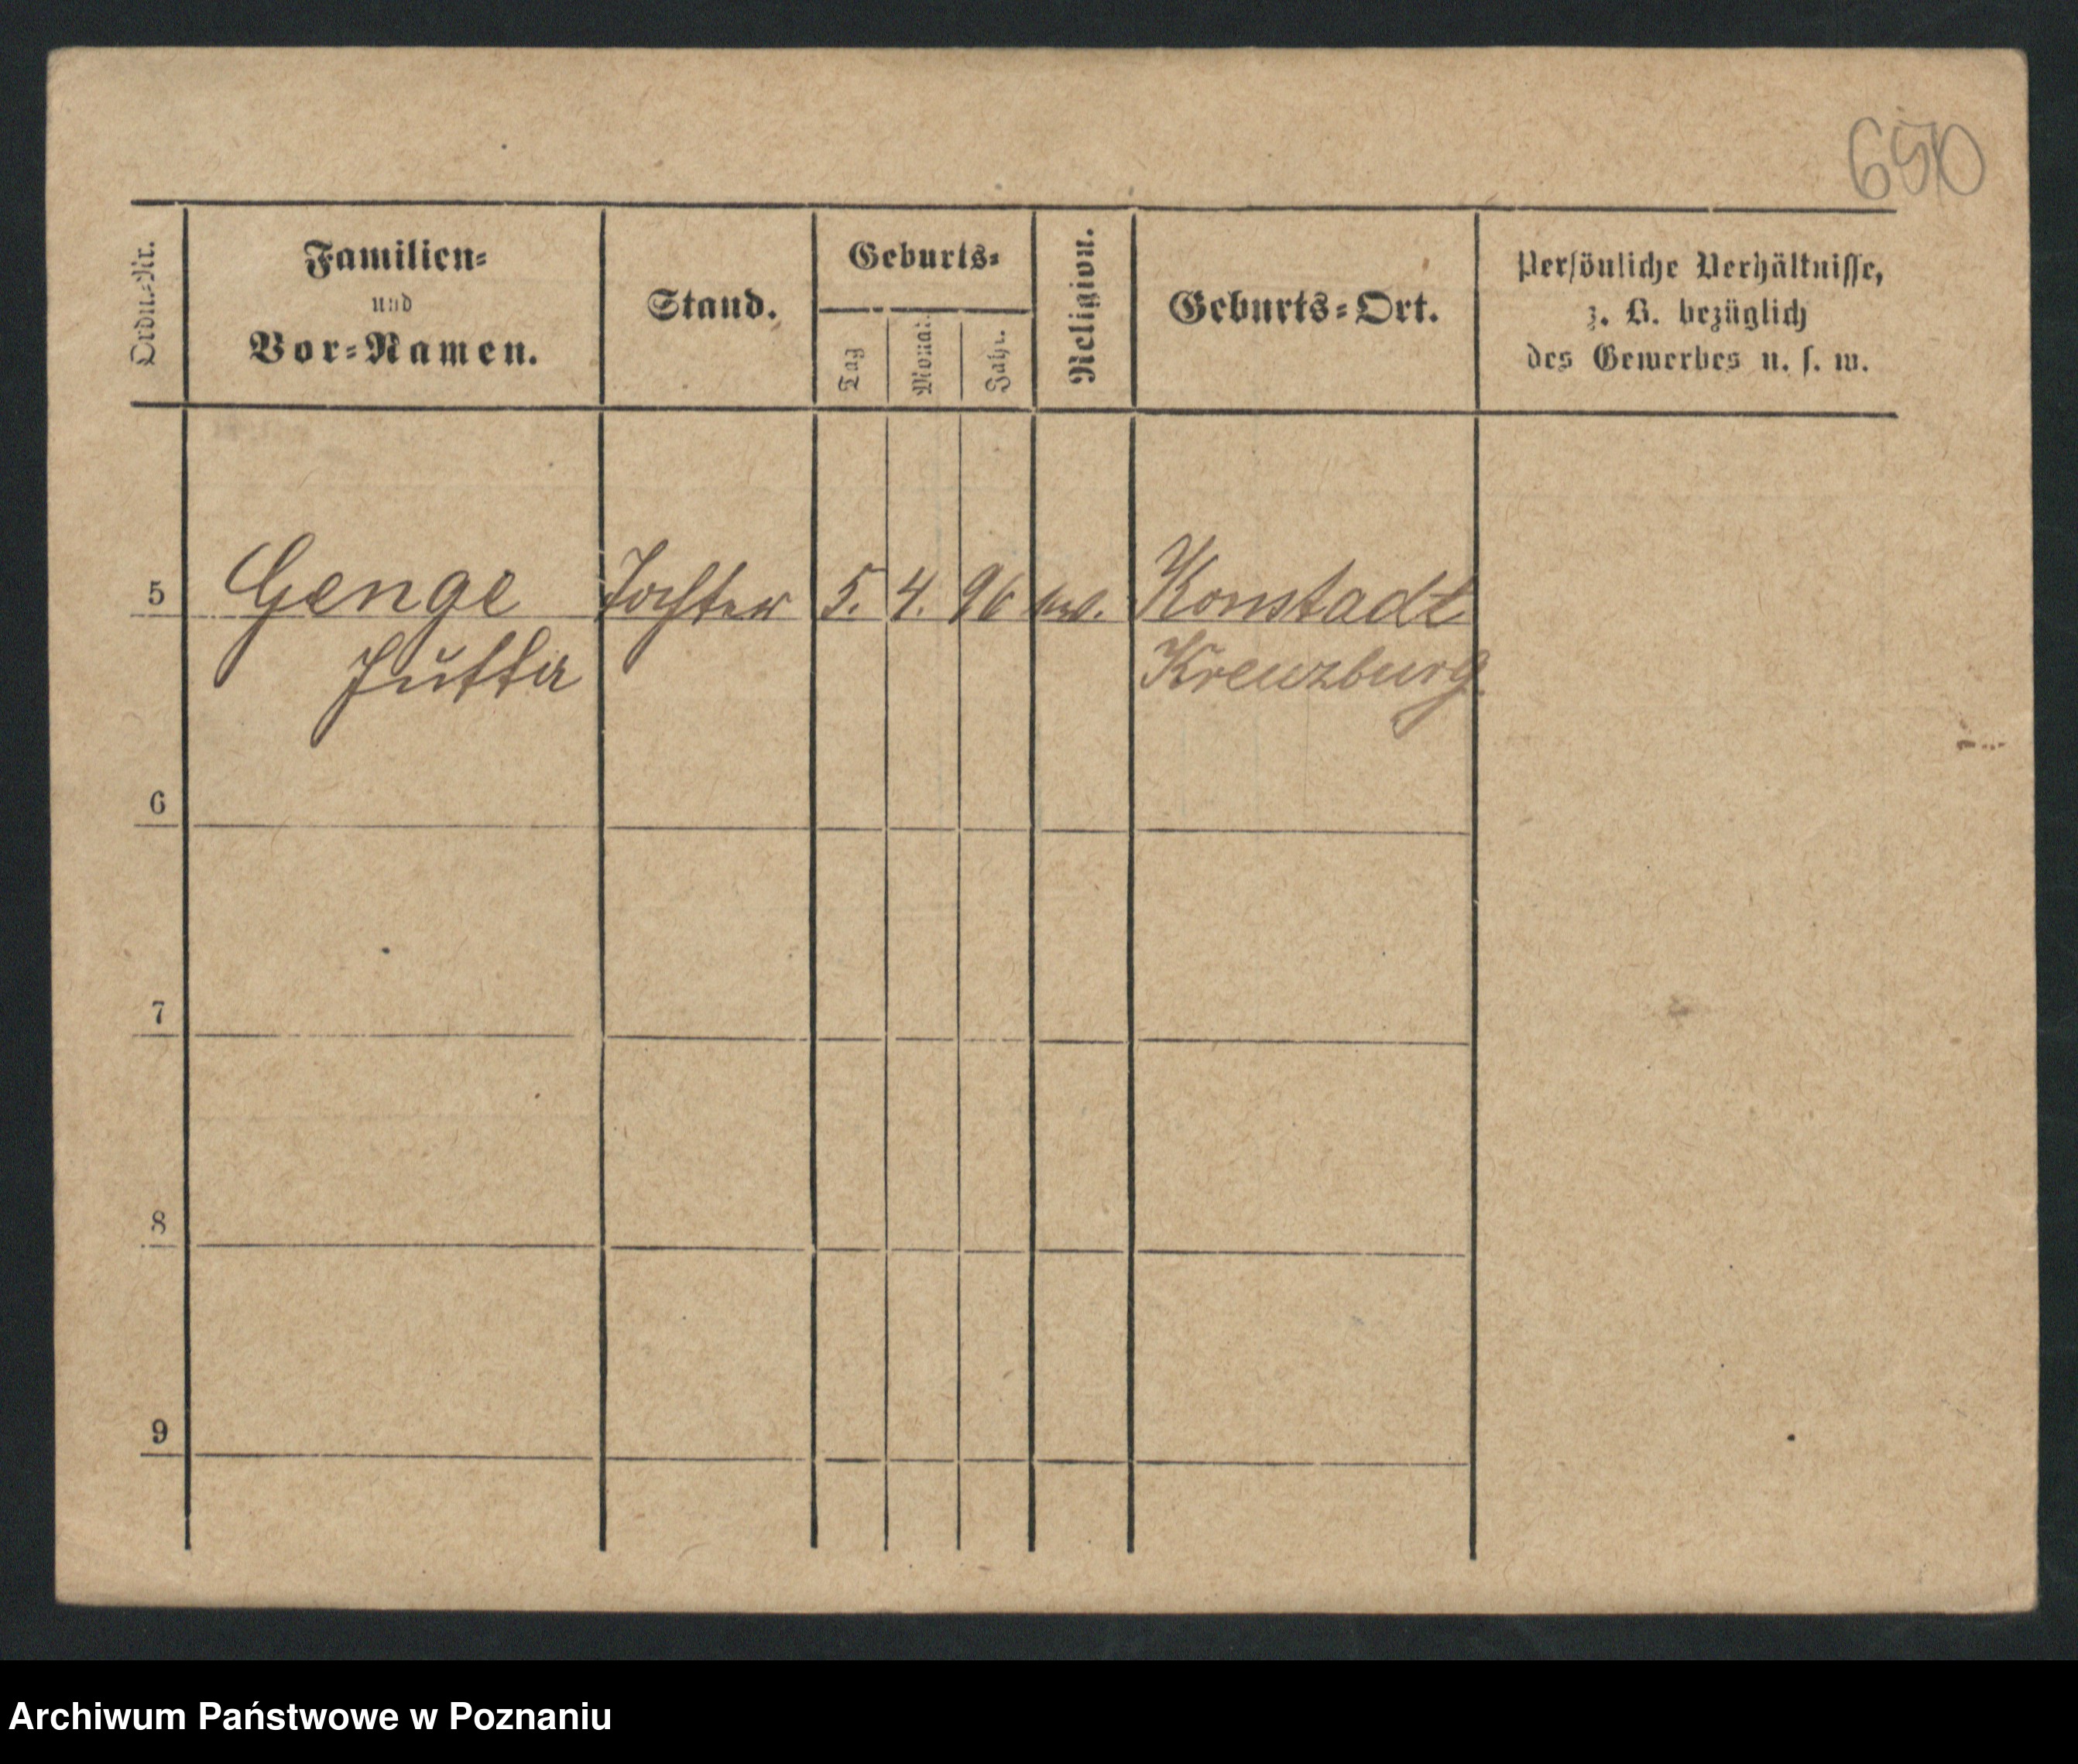 650
Ordn.-Nr.
Familien-
und
Vor-Namen.
Stand.
Geburts-
Tag
Monat
Jahr.
Religion.
Geburts-Ort.
Persönliche Verhältnisse,
z. B. bezüglich
des Gewerbes u. s. w.
5 Genge Tochter 5. 4. 96 ev. Konstadt
Jutta Kreuzburg.
6
7
8
9
Archiwum Państwowe w Poznaniu